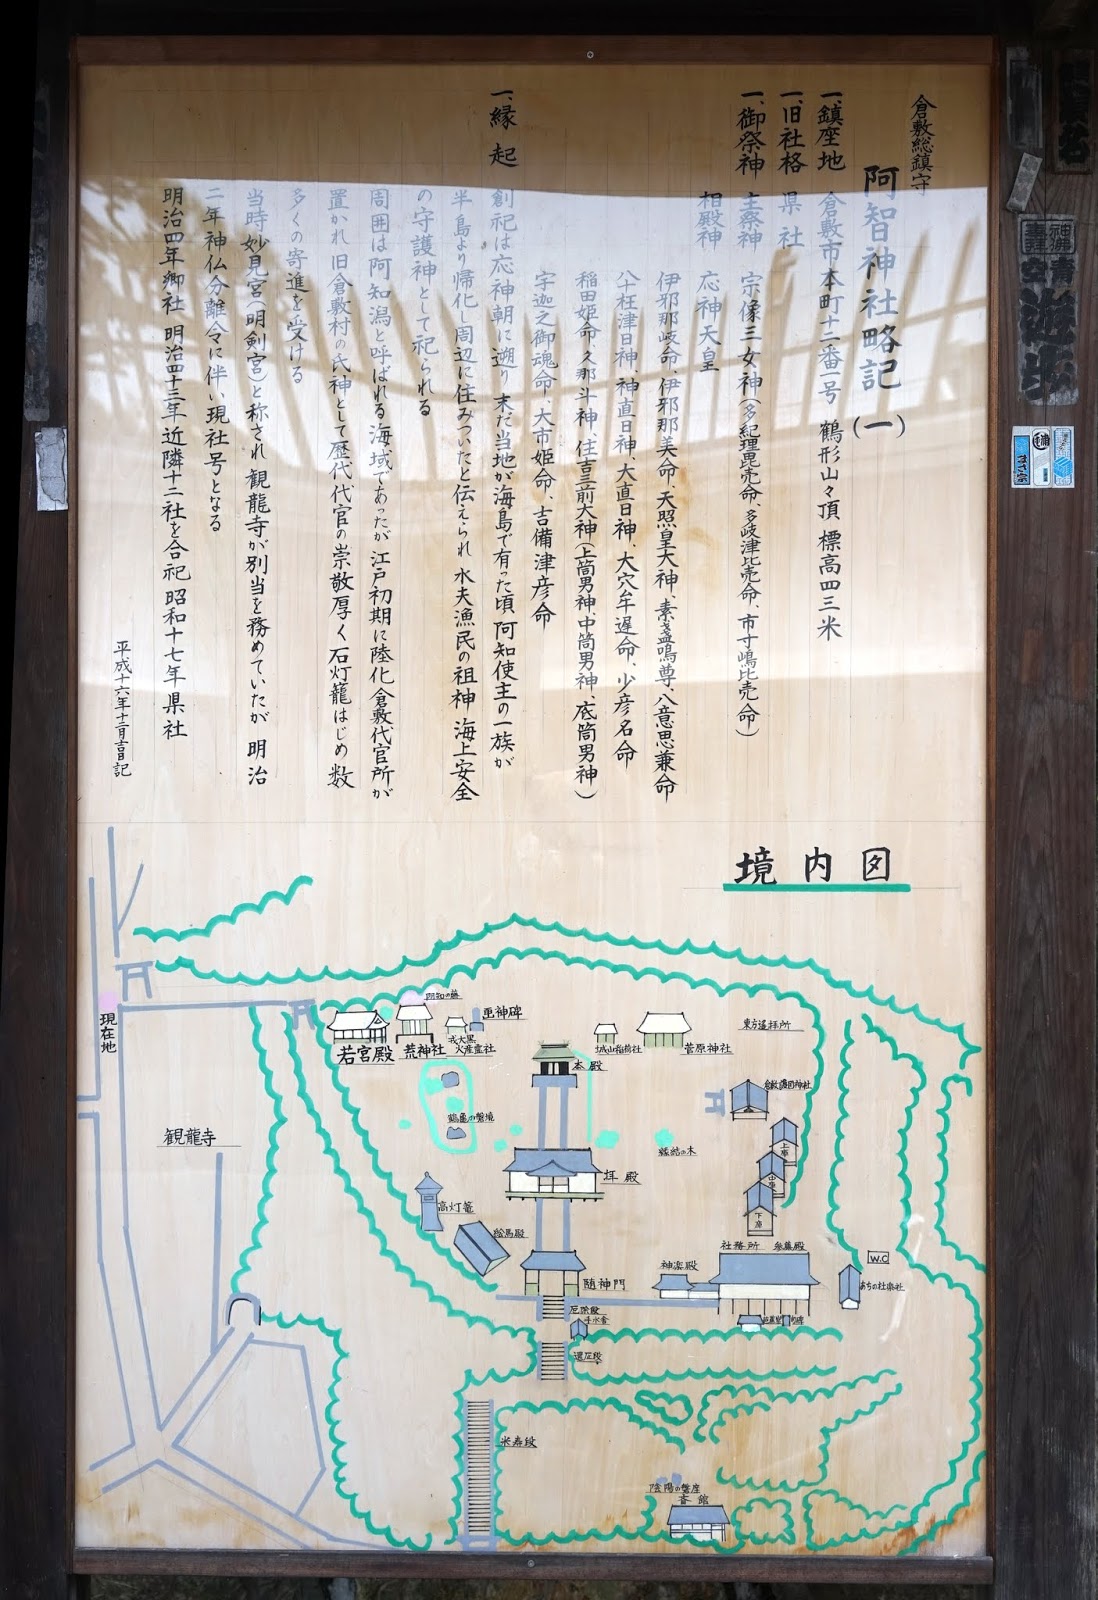 倉敷総鎮守
阿智神社略記(一)
一、鎮座地 倉敷市本町十二番一号 鶴形山々頂 標高四三米
一、旧社格 県社
一、御祭神 主祭神 宗像三女神(多紀理毘売命、多岐津比売命、市寸嶋比売命)
相殿神 応神天皇
伊邪那岐命、伊邪那美命、天照皇大神、素盞嗚尊、八意思兼命
八十枉津日神、神直日神、大直日神、大穴牟遅命、少彦名命
稲田姫命、久那斗神、住吉三前大神(上筒男神、中筒男神、底筒男神)
宇迦之御魂命、大市姫命、吉備津彦命
一、縁起 創祀は応神朝に遡り 末だ当地が海島で有った頃 阿知使主の一族が
半島より帰化し周辺に住みついたと伝えられ 水夫漁民の祖神 海上安全
の守護神として祀られる
周囲は阿知潟と呼ばれる海域であったが 江戸初期に陸化 倉敷代官所が
置かれ 旧倉敷村の氏神として歴代代官の崇敬厚く 石灯籠はじめ 数
多くの寄進を受ける
当時 妙見宮(明剣宮)と称され 観龍寺が別当を務めていたが 明治
二年神仏分離令に伴い 現社号となる
明治四年郷社 明治四十三年 近隣十二社を合祀 昭和十七年 県社
平成十六年十二月吉日 記
境内図
現在地
阿知の藤
若宮殿
荒神社
戎大黒
火産霊社
城山稲荷社
菅原神社
東方遥拝所
本殿
倉敷護国神社
鶴亀の磐境
観龍寺
縁結の木
上席
中席
下席
拝殿
高灯篭
絵馬殿
社務所
参集殿
神楽殿
W.C
随神門
あちの杜楽社
厄除段
手水舎
還暦段
米寿段
陰陽の磐座
斎館